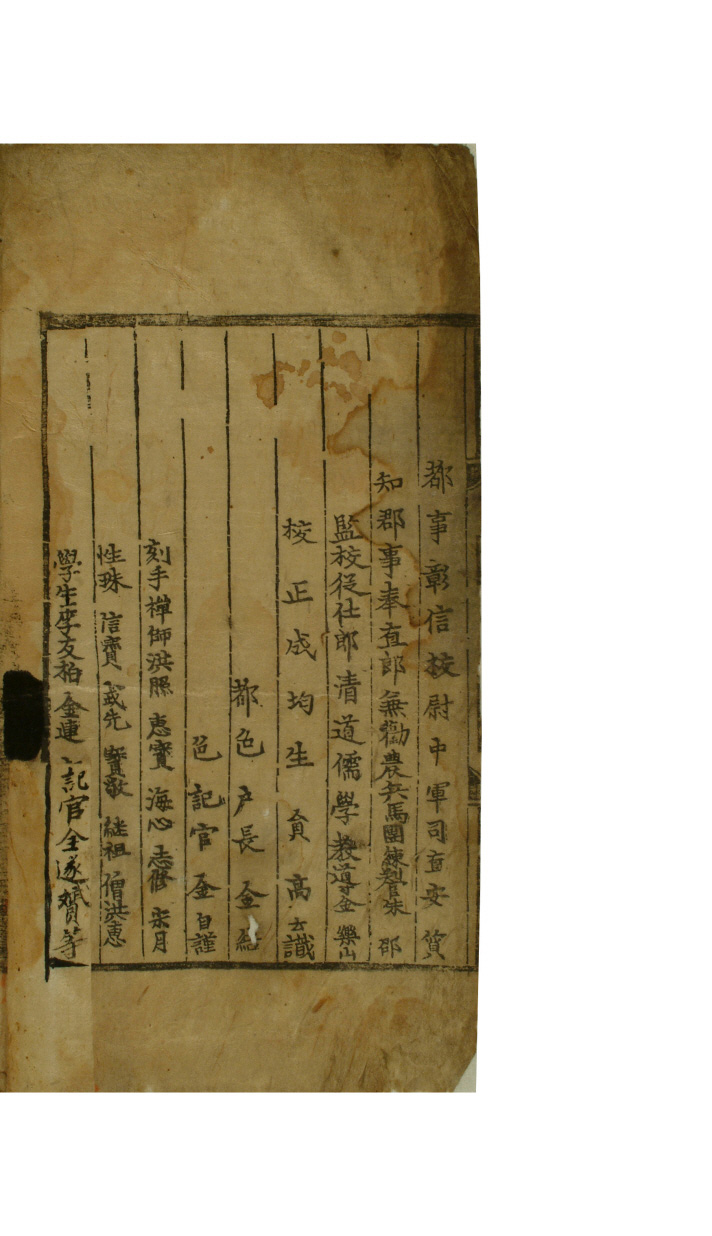 都事彰信校尉中軍司直安質
知郡事奉直郎兼勸農兵馬團練判官朱邵
監校從仕郎清道儒學教導金樂山
校正成均生員高士識
都色戶長金
邑記官金自謹
刻手禪師洪照 惠寶 海心 志修 宗月
性珠 信寶 戒先 寶敬 継祖 僧洪惠
學生李友栢 金連 記官金遂贇等